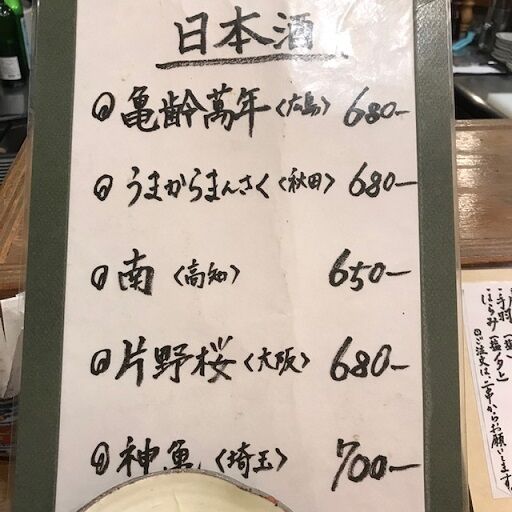 日本酒
◎亀齢萬年〈広島〉 680-
◎うまからまんさく〈秋田〉 680-
◎南〈高知〉 650-
◎片野桜〈大阪〉 680-
◎神亀〈埼玉〉 700-
手羽
はらみ(塩/タレ)
◎ご注文は、二串からお願いします。